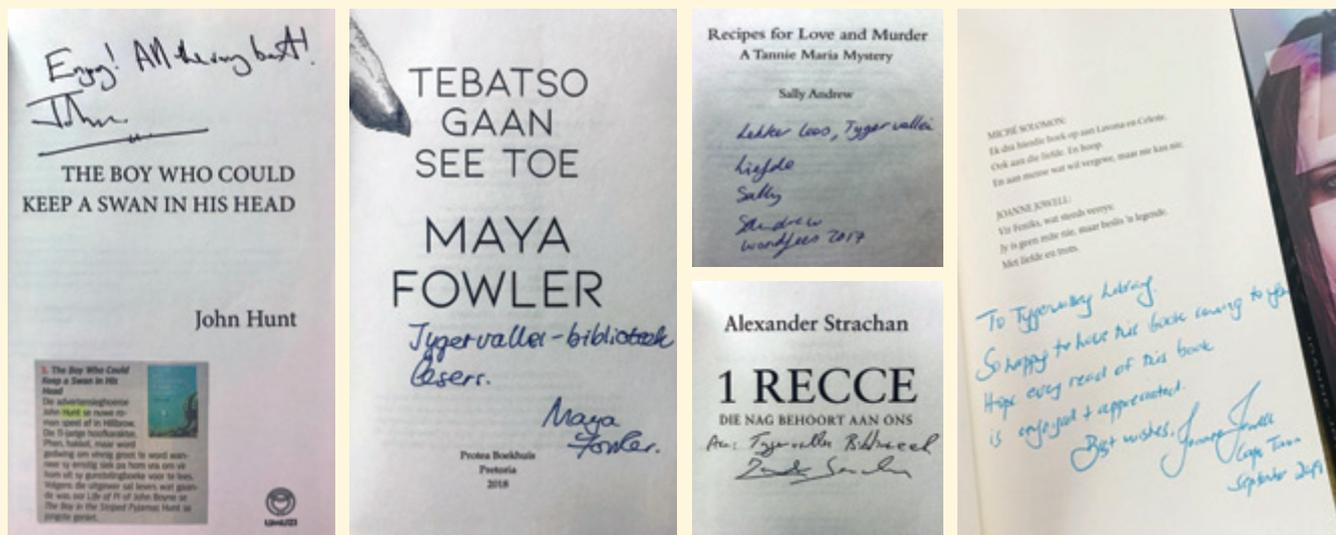 Enjoy! All the very best!
John.
THE BOY WHO COULD
KEEP A SWAN IN HIS HEAD
John Hunt
3. The Boy Who Could
Keep a Swan in His
Head
Die advertensieghoeroe
John Hunt se nuwe ro-
man speel af in Hillbrow.
Die 11-jarige hoofkarakter,
Phen, hakkel, maar word
gedwing om vinnig groot te word wan-
neer sy ernstig siek pa hom vra om vir
hom uit sy gunstelingboeke voor te lees.
Volgens die uitgewer sal lesers wat gaan-
de was oor Life of Pi of John Boyne se
The Boy in the Striped Pyjamas Hunt se
jongste geniet.
UMUZI
TEBATSO
GAAN
SEE TOE
MAYA
FOWLER
Tygervallei-biblioteek
lesers.
Maya
Fowler.
Protea Boekhuis
Pretoria
2018
Recipes for Love and Murder
A Tannie Maria Mystery
Sally Andrew
Lekker lees, Tygervallei
Liefde
Sally
SAndrew
Woordfees 2017
Alexander Strachan
1 RECCE
DIE NAG BEHOORT AAN ONS
Aan: Tygervallei Biblioteek
MICHÉ SOLOMON:
Ek dra hierdie boek op aan Lavona en Celeste.
Ook aan die liefde. En hoop.
En aan mense wat wil vergewe, maar nie kan nie.
JOANNE JOWELL:
Vir Feniks, wat steeds verrys:
Jy is geen mite nie, maar beslis 'n legende.
Met liefde en trots.
To Tygervalley Library
So happy to have this book coming to you
Hope every read of this book
is enjoyed + appreciated.
Best wishes, Joanne Jowell
Cape Town
September 2019